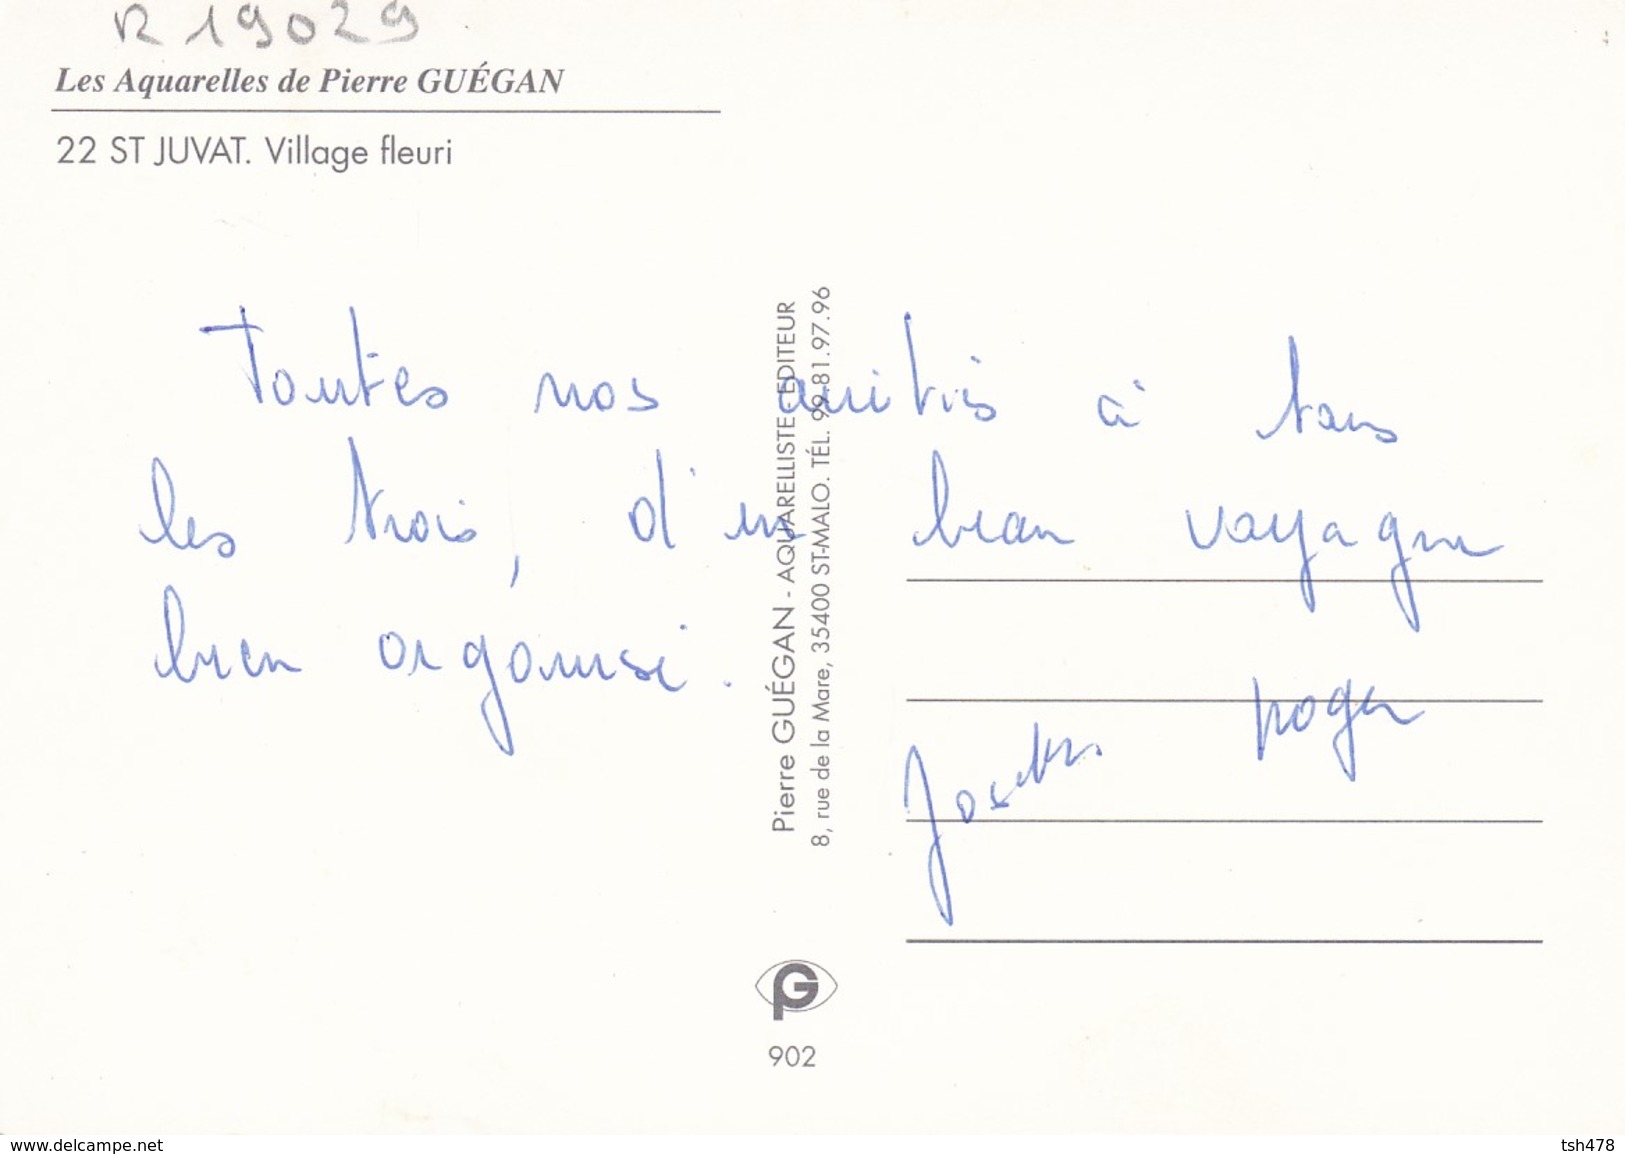 R 19029
Les Aquarelles de Pierre GUÉGAN
22 ST JUVAT. Village fleuri
Toutes nos amitiés à tous
les trois, d'un beau voyage
bien organisé.
Roger
Pierre GUÉGAN - AQUARELLISTE - EDITEUR
8, rue de la Mare, 35400 ST-MALO. TÉL. 99.81.97.96
PG
902
www.delcampe.net
tsh478